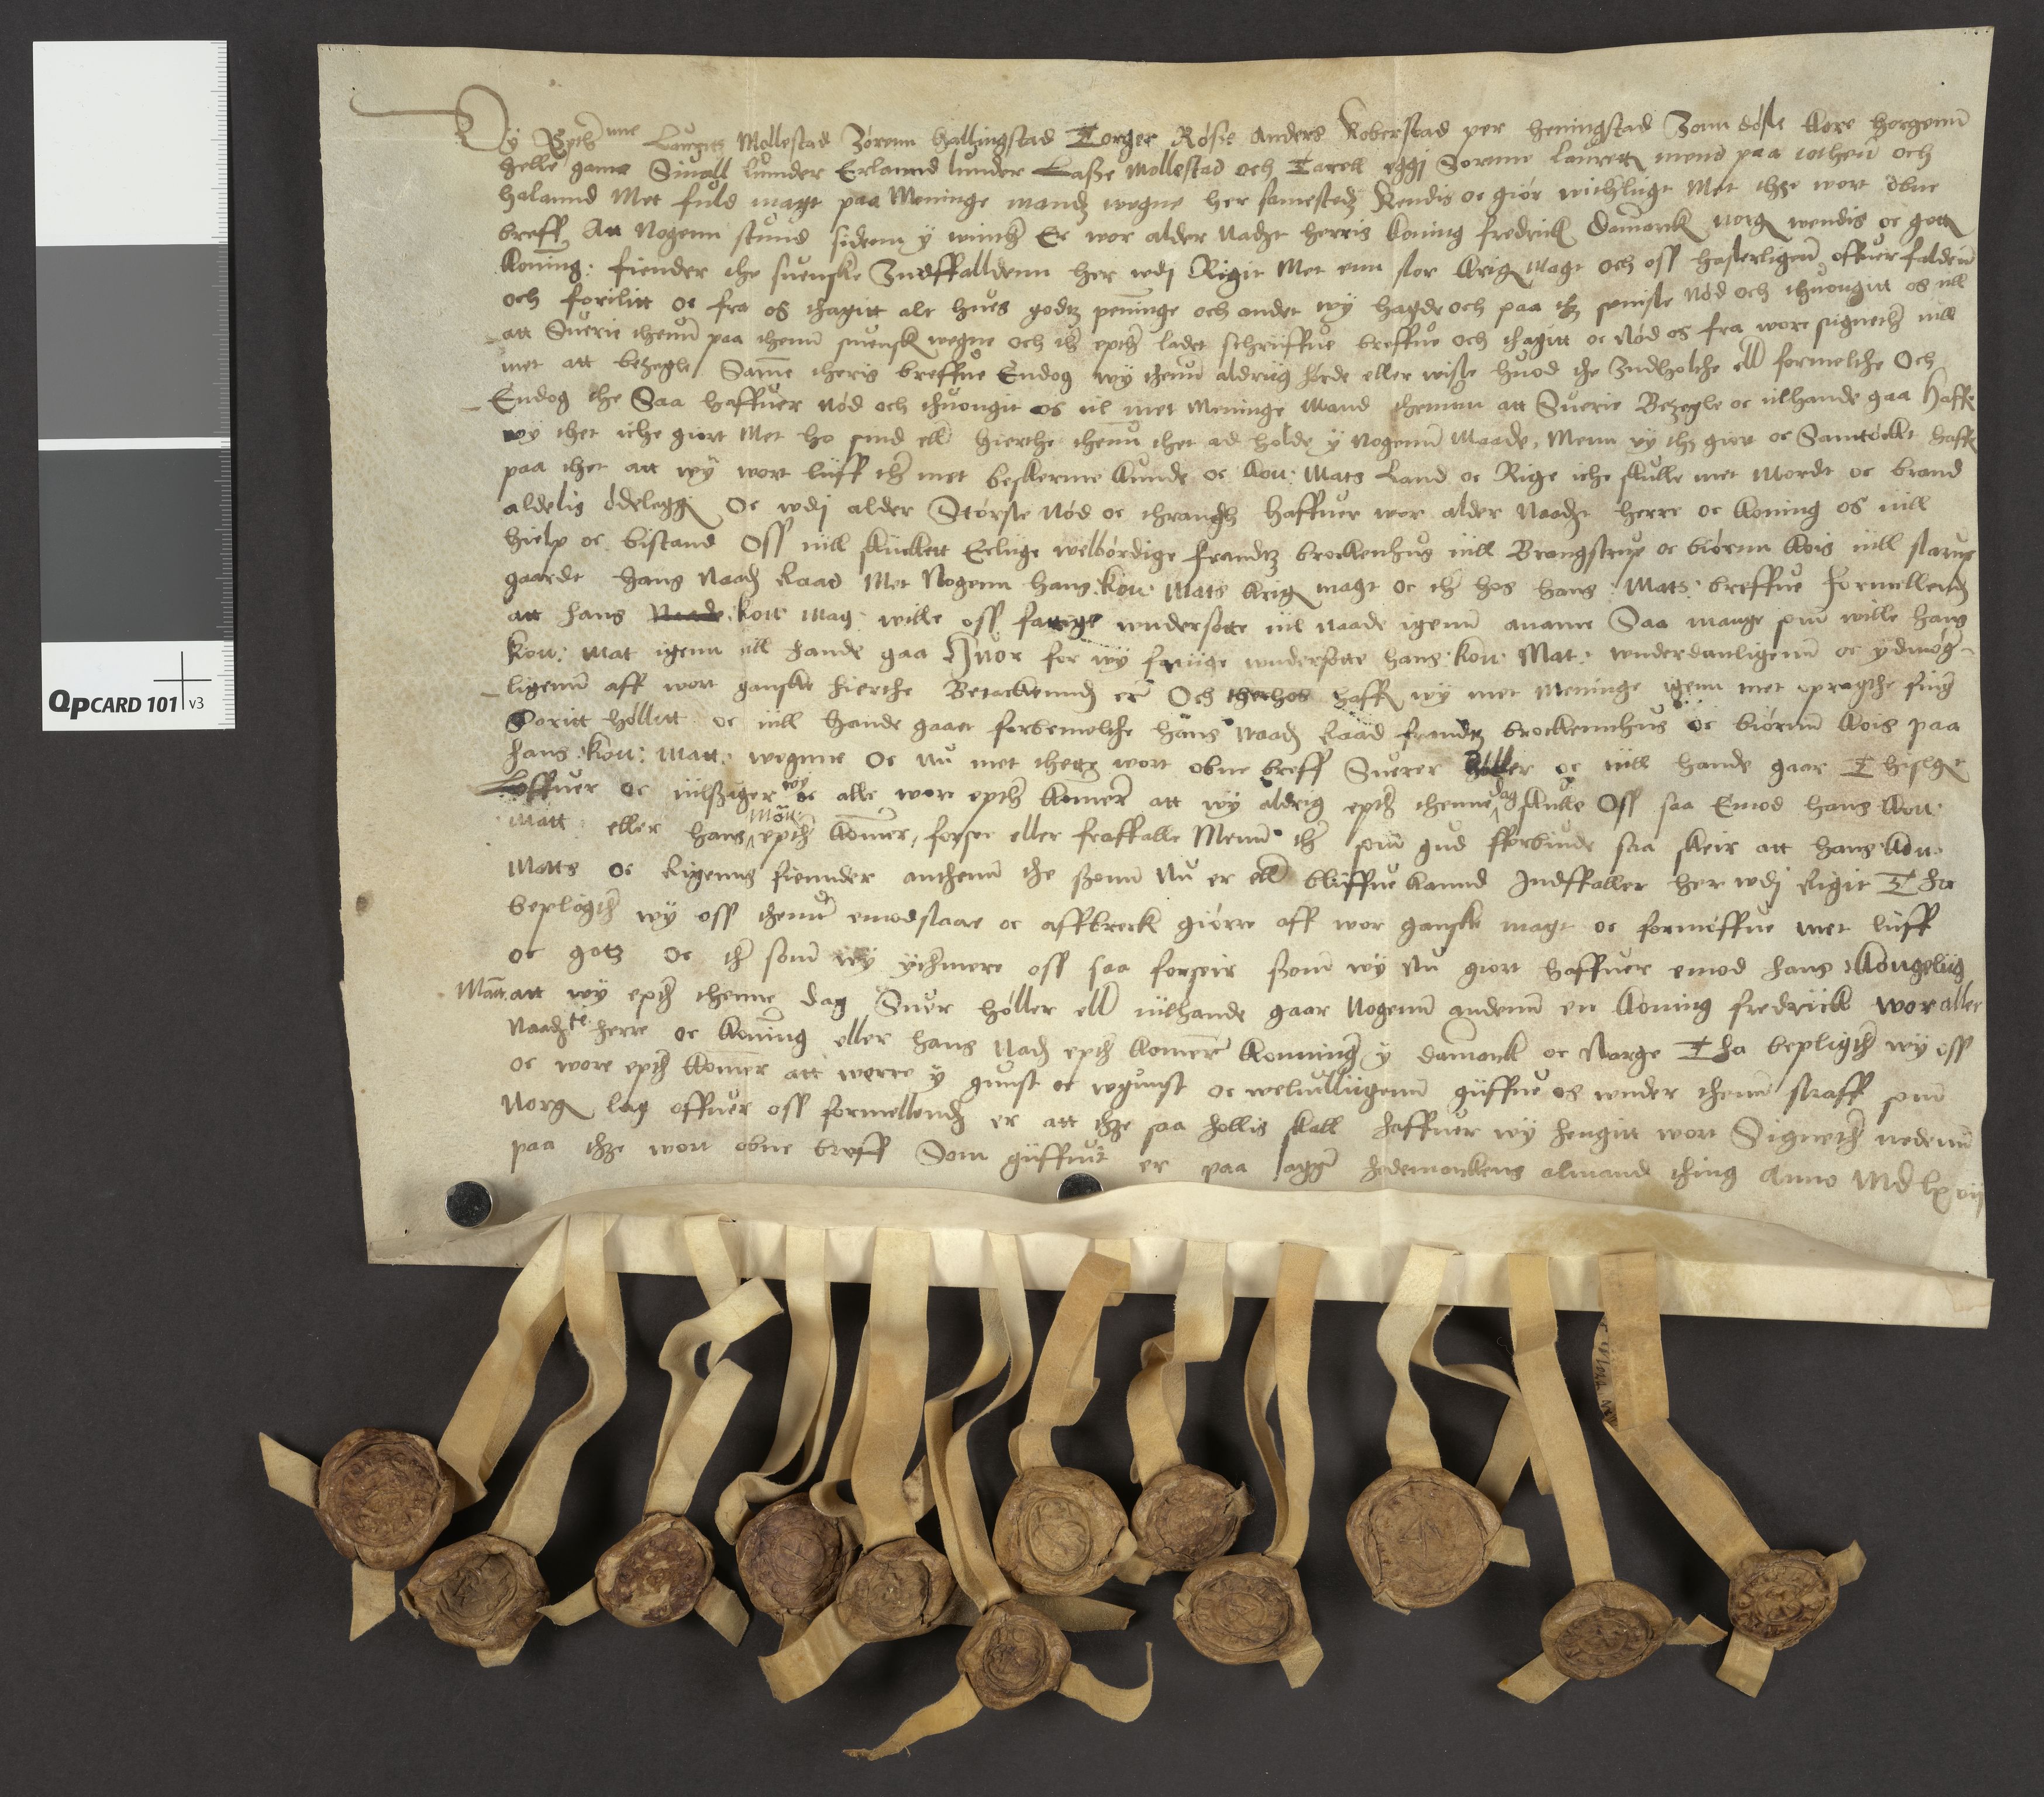 Wy Epthne Lauritz Mollestad Zörenn hallingstad Torger Röste Anders Koberstad per heningstad Jonn döste kore horgenn
helle game Siuall lunder Erlannd lunder Lasse Mollestad och Taroll eggj Sorenne laurett mend paa tothenn och
halannd Met fuld magt paa Meninge mandz wegne her samestedz Kendis oc giör witherligt Met thze wort obne
breff Att Nogenn stund sidenn y winther Er wor alder Nadzt herris koning fredrick Damarck norg wendis oc gott
koning: fiender the suenske Indffalldenn her wdj Rigit Met enn stor krigs magt och oss hasterligenn offuer falden
och forilitt oc fra os thagitt alt hues godtz peninge och andet wy hagde och paa thz seniste Nöd och thuongitt os till
att Suerie thenn paa thenn suensk wegne och ther epther ladet schriffue breffue och thagitt oc Nöd os fra wore signether till
met att bezegle Samme theris breffue Endog wy thenn aldrig hörde eller wiste huod the Indholthe ell formelthe Och
Endog the Saa haffuer Nöd och thuongit os til met Meninge Mand themnn att Suerie Bezegle oc tilhande gaa Haffe
wy thet iche giort Met ho sind ell hierthe thenn thet ad holde y Nogenn Maade, Menn wy thz giort oc Samtöckt haffe
paa thet att wy wort liiff ther met beskerme kunde oc kon: Mats Land oc Rige iche skulle met Mordt oc brand
aldelis ödelegge Oc wdj alder Störste Nöd oc thrangh Haffuer wor alder Naadzt herre oc koning os till
hielp oc bistand Oss till skickett Erlige welbördige frandtz brockenhus till Brangstrup oc biörnn kois till starup
gaardt hans Naadz Raad Met Nogenn hans kon: Mats krigs magt oc ther hos hans Matts: breffue formellendz
att hans Naade kon: Mag: wille oss fattige wndersotte til Naade igenn aname Saa mange som wille hans
kon: Mat igenn till hande gaa Huor for wy fattige wndersotte hans kon: Mat: wnderdanligenn oc ydmög-
ligenn aff wort ganske hierthe Betackennde er Och therhos haffe wy met Meninge igenn met opragthe fing
Soritt höllitt oc till hande gaaet forbemelthe hans Naadz Raad frandtz brockennhus oc biörnn kois paa
hans kon: Matt: wegnne Oc Nu met thette wort obne breff Suerer höller oc till hande gaar Thislige
Loffuer oc tilssiger wy oc alle wore epther komer att wy aldrig epther thenne dag skulle Oss saa Emod hans kon:
Matt: eller hans Matt: epther komer, forsee eller fraffalle Menn ther som gud fforbiude saa skeir att hans kon:
Matts oc Rigenns fiennder anthenn the ssom Nu er ell bliffue kannd Indffaller her wdj Rigit Tha
bepligther wy oss thenn emodstaae oc affbreck giörre aff wor ganske magt oc formöffue met liiff
oc gotz oc ther som wy ythmere oss saa forseir ssom wy Nu giort haffuer emod hans Kongelig
Matt. att wy epther thenne dag Suer höller ell tilhande gaar Nogenn andenn en koning fredrick wor aller
Naadzte herre oc koning eller hans Nadz epther komer konninge y damarck oc Norge Tha bepligther wy oss
oc wore epther komer att werre y gunst oc wgunst oc weluilligenn giffue os wnder thenn straff som
Norges lag offuer oss formellendz er att thze saa hollis skall haffuer wy hengitt wort Signether nedenn
paa thze wort obne breff Som giffuit er paa agger hedemarckens almand thing Anno MD lxvij
QPCARD 101 v3